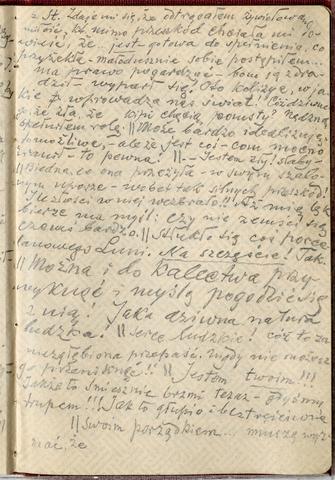 z St. Zdaje mi się, że odtrącałem żywiołową
miłość, kt. mimo przeszkód chciała mi
wiście, że jest gotowa do spełnienia, co
przyrzekła – małodusznie sobie postąpiłem...
ma prawo pogardzać – bom ją zdra-
dził wyparł się! Oto kolizje, w ja-
kie P. wprowadza nas świat! Cóż dziwne-
go, że zła, że kipi chęcią pomsty? Nędzną
spełniłem rolę! || Może bardzo idealizuję,
pomożliwe, – ale że jest coś – com mocno
zranił – to pewna! || – Jestem zły! Słaby –
|| Biedna, co ona przeżyła – w swym szalo-
nym uporze – wobec tak silnych przeszkód!
Ile złości w niej wezbrało!! Aż mię lęk
bierze na myśl: czy nie zemści się
czasem bardzo. || Stłukło się coś porce-
lanowego Luni. Na szczęście! Tak.
|| Można i do kalectwa przy-
wyknąć i myślą pogodzić się
z nią! Jaka dziwna natura
ludzka! || Serce ludzkie – cóż to za
niezgłębiona przepaść. Nigdy nie możesz
go przeniknąć!! || Jestem twoim!!!
Jakże to śmiesznie brzmi teraz – gdyśmy
trupem!!! Jak to głupio i beztreściwie
|| Swoim porządkiem... muszę wyz-
nać, że